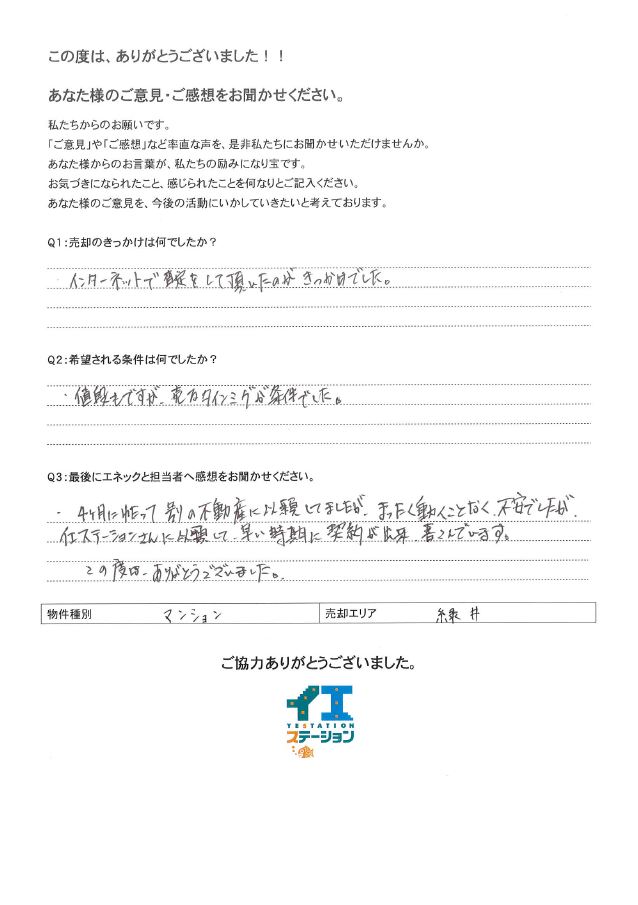 この度は、ありがとうございました！！
あなた様のご意見・ご感想をお聞かせください。
私たちからのお願いです。
「ご意見」や「ご感想」など率直な声を、是非私たちにお聞かせいただけませんか。
あなた様からのお言葉が、私たちの励みになり宝です。
お気づきになられたこと、感じられたことを何なりとご記入ください。
あなた様のご意見を、今後の活動にいかしていきたいと考えております。
Q1：売却のきっかけは何でしたか？
・インターネットで査定をして頂いたのがきっかけでした。
Q2：希望される条件は何でしたか？
・値段もですが、売るタイミングが条件でした。
Q3：最後にエネックと担当者へ感想をお聞かせください。
・4ヶ月に渡って別の不動産に依頼してましたが、まったく動くことなく、不安でしたが、
イエステーションさんに依頼して、早い時期に契約が出来、喜んでいます。
この度は、ありがとうございました。
物件種別 マンション 売却エリア 緑井
ご協力ありがとうございました。
イエ
YESTATION
ステーション